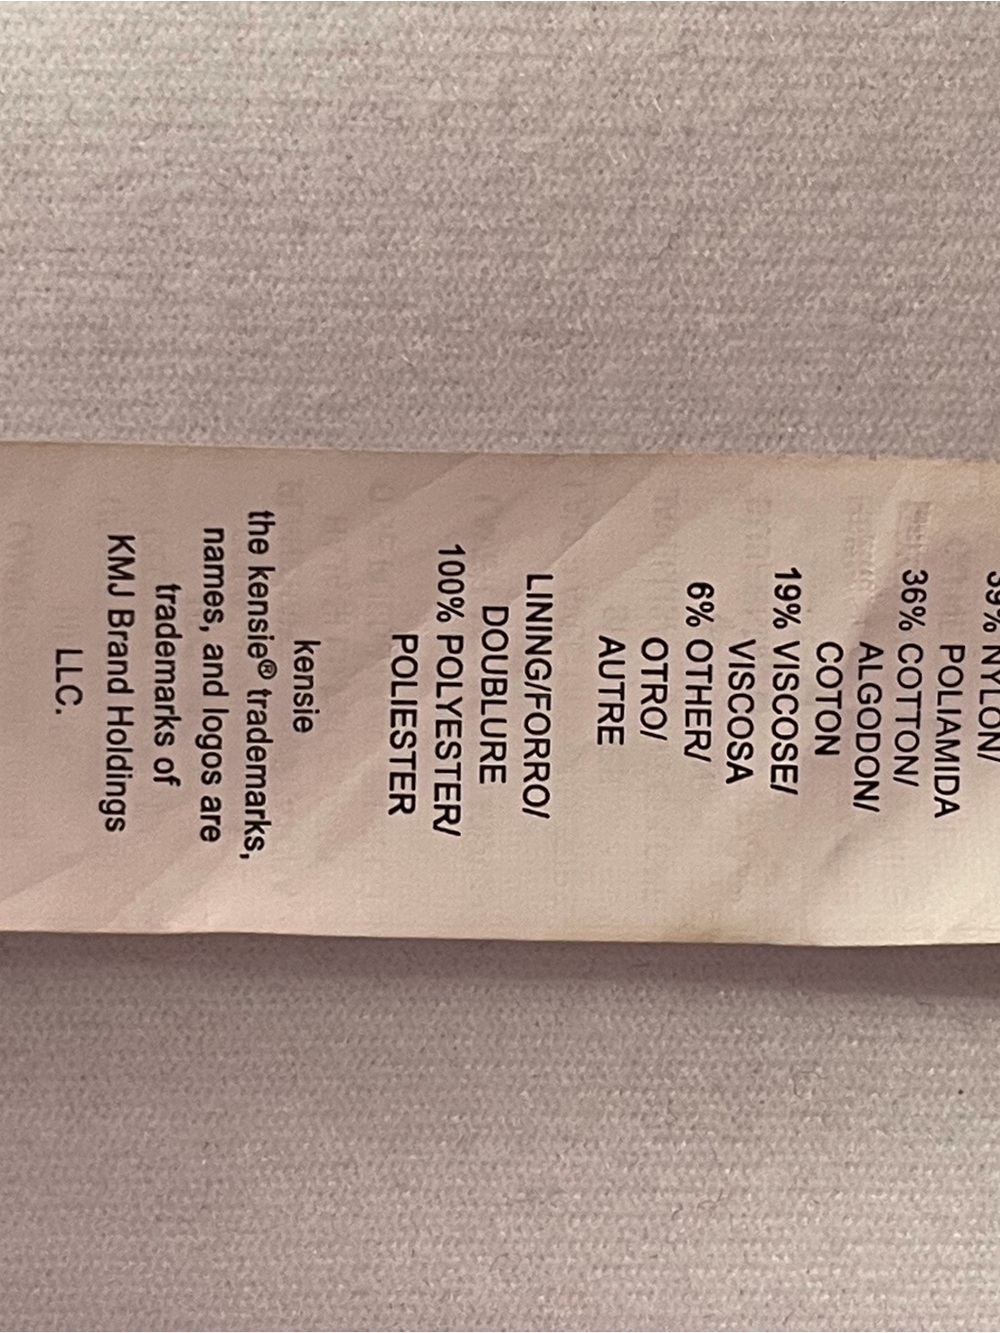 39% NYLON/
POLIAMIDA
36% COTTON/
ALGODON/
COTON
19% VISCOSE/
VISCOSA
6% OTHER/
OTRO/
AUTRE
LINING/FORRO/
DOUBLURE
100% POLYESTER/
POLIESTER
kensie
the kensie® trademarks,
names, and logos are
trademarks of
KMJ Brand Holdings
LLC.